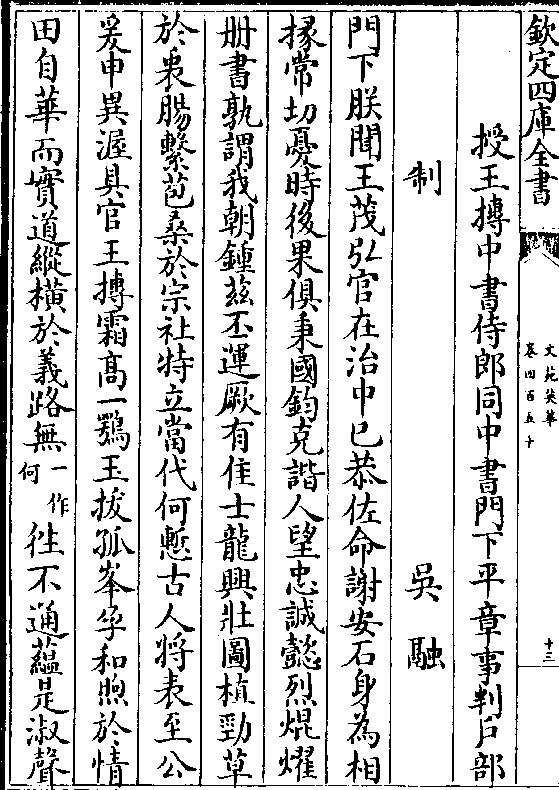 欽定四庫全書
文苑英華
卷四百五十
十三
授王摶中書侍郎同中書門下平章事判戶部
制　吳融
門下朕聞王茂弘官在治中已恭佐命謝安石身為相
掾常切憂時後果俱秉國鈞克諧人望忠誠懿烈焜燿
册書孰謂我朝鍾兹丕運厥有佳士龍興壯圖植勁草
於衷腸繫苞桑於宗社特立當代何慙古人將表至公
爰申異渥具官王摶霜高一鶚玉拔孤峯孕和煦於情
田自華而實道縱橫於義路無一作何徃不通蘊是淑聲